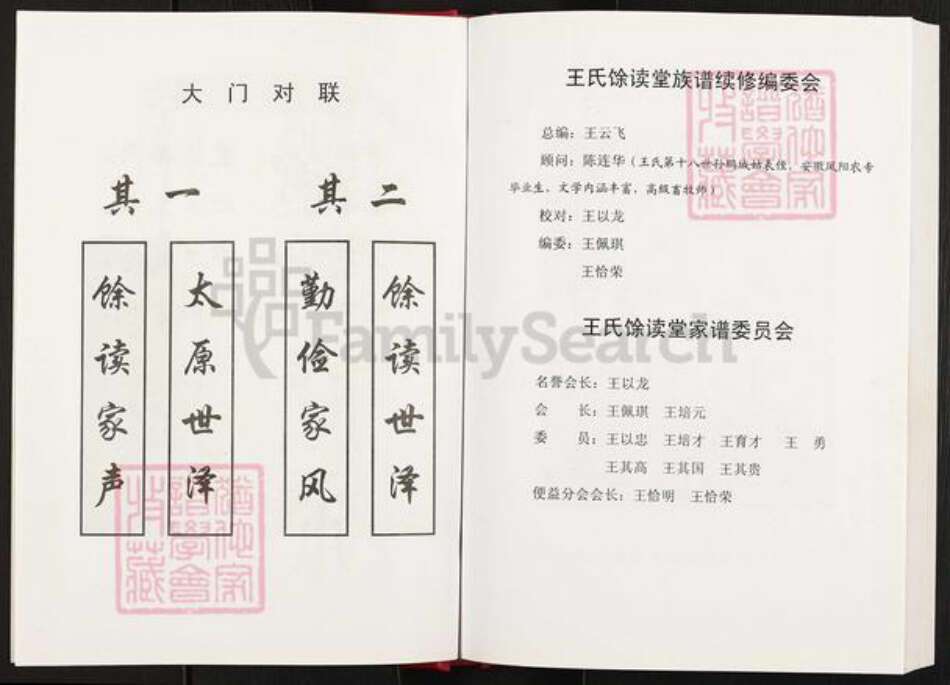 大门对联
其一
其二
馀读家声
太原世泽
勤俭家风
馀读世泽
王氏馀读堂族谱续修编委会
总编：王云飞
顾问：陈连华（王氏第十八世孙鹏城姑表侄，安徽凤阳农专
毕业生，文学内涵丰富，高级畜牧师）
校对：王以龙
编委：王佩琪
王恰荣
王氏馀读堂家谱委员会
名誉会长：王以龙
会　　长：王佩琪　王培元
委　　员：王以忠　王培才　王育才　王　勇
王其高　王其国　王其贵
便益分会会长：王恰明　王恰荣
FamilySearch